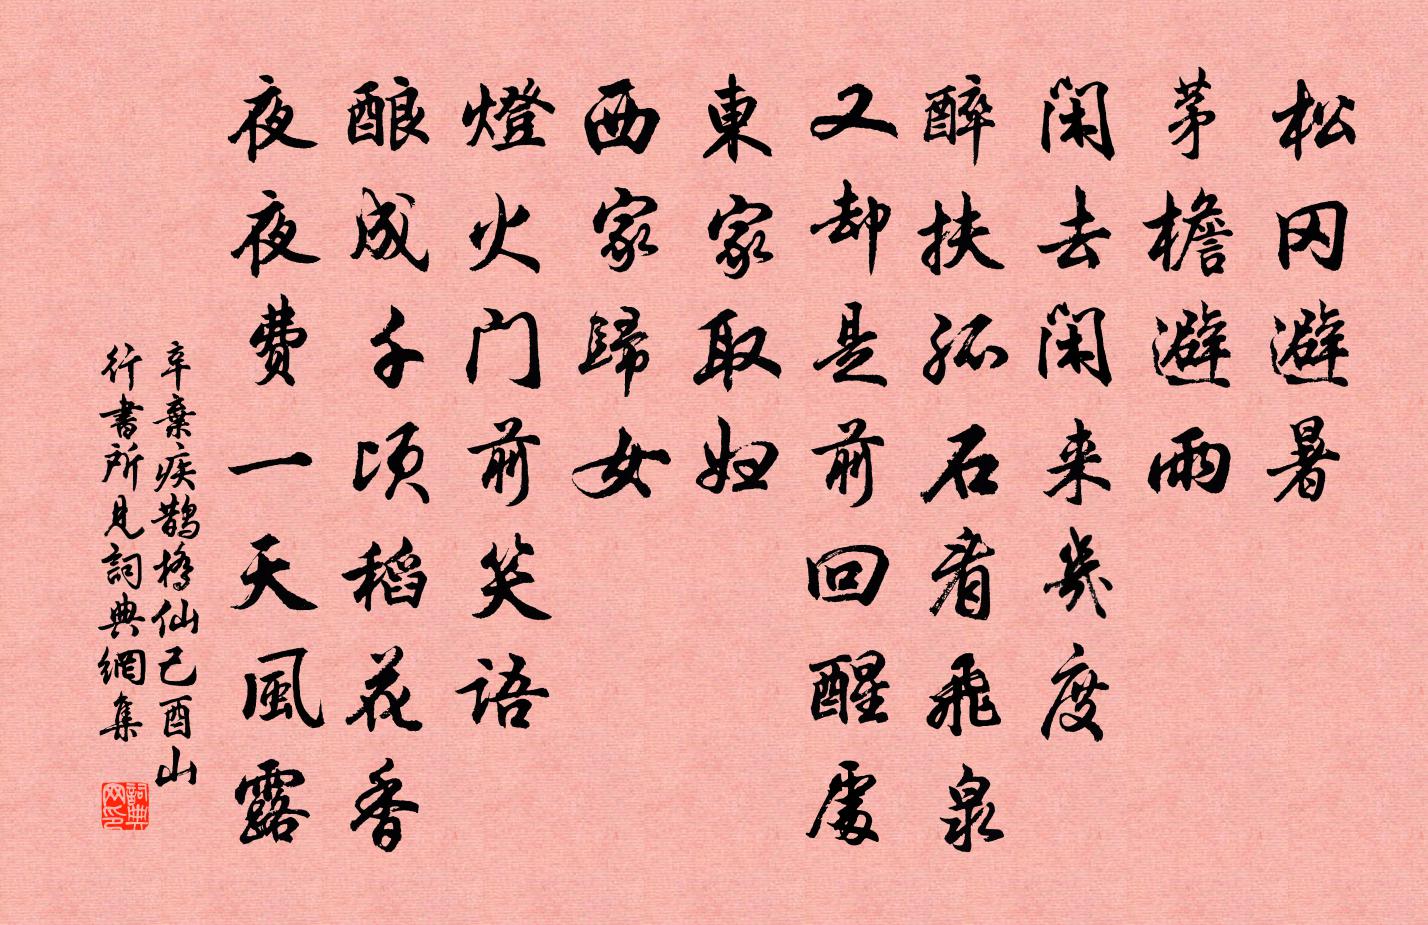 松冈避暑
茅檐避雨
闲去闲来几度
醉扶孤石看飛泉
又却是前回醒處
東家取妇
西家歸女
燈火门前笑语
酿成千顷稻花香
夜夜费一天風露
辛棄疾鹊橋仙己酉山
行書所見詞典網集
詞典
网印